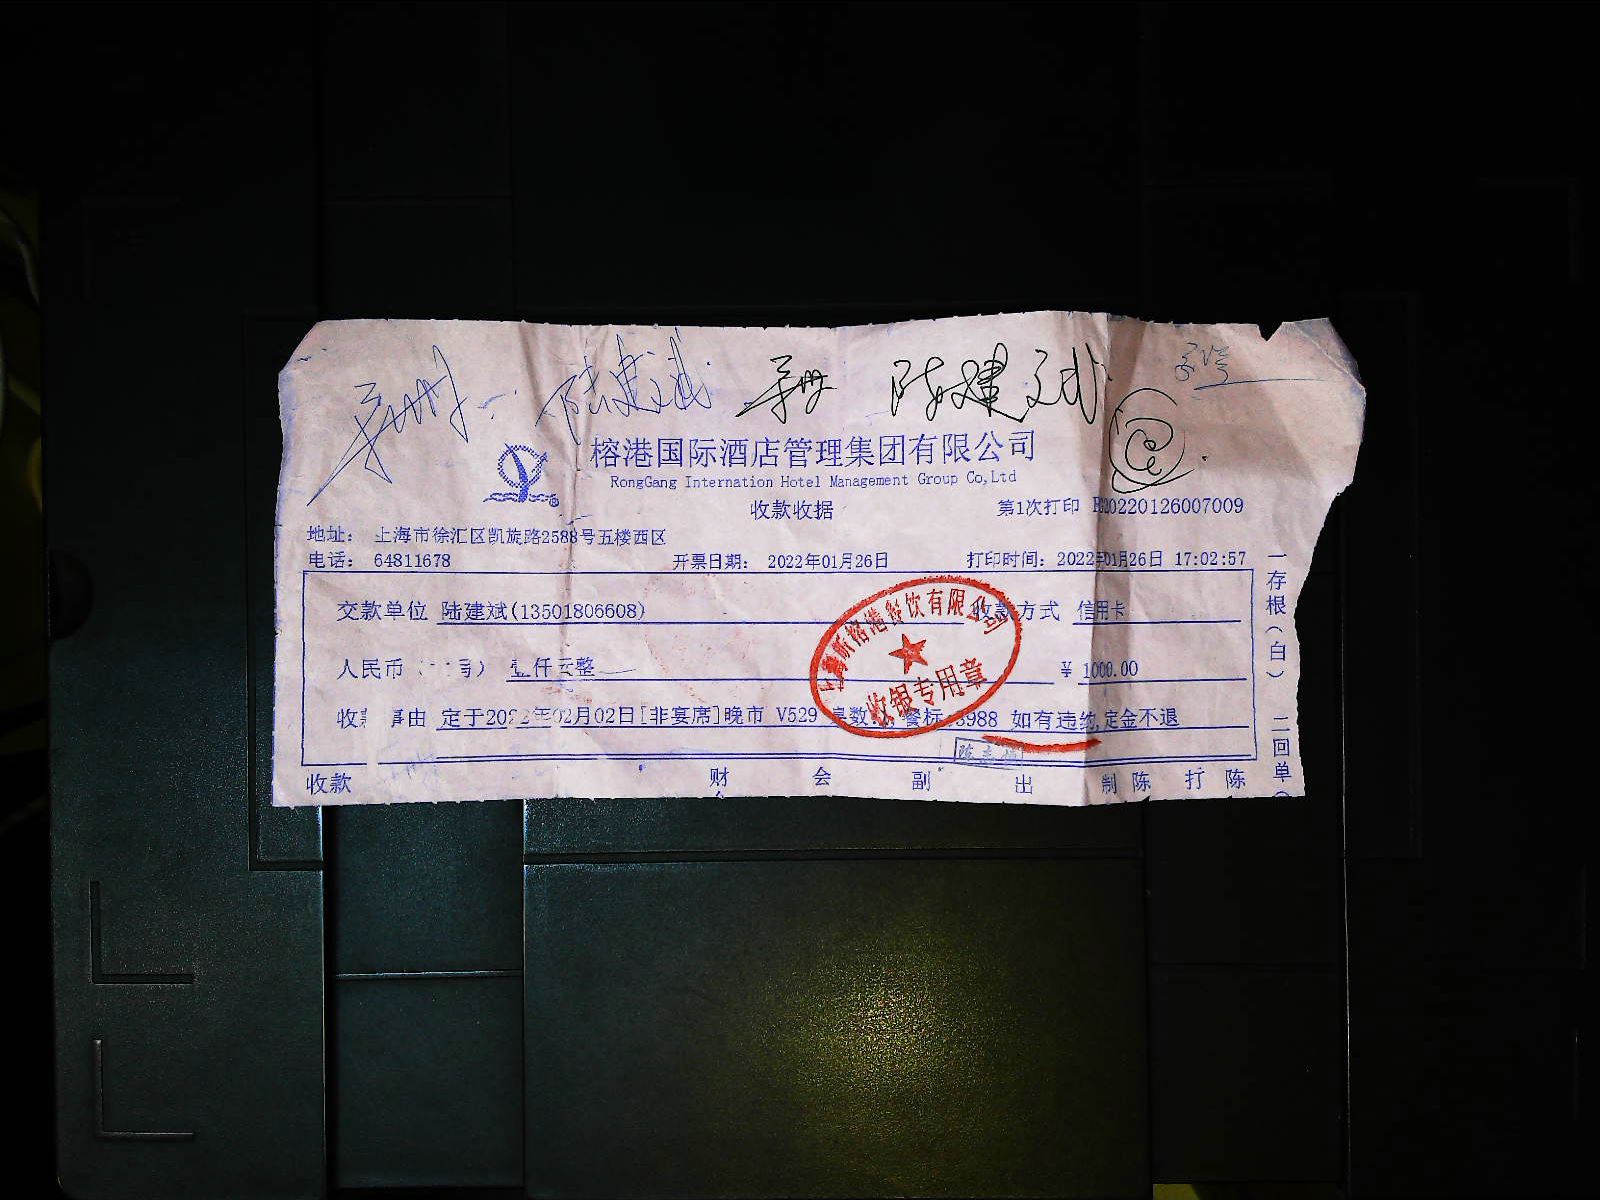 陆建斌 陆建斌
榕港国际酒店管理集团有限公司
RongGang Internation Hotel Management Group Co,Ltd
收款收据 第1次打印 20220126007009
地址: 上海市徐汇区凯旋路2588号五楼西区
电话: 64811678 开票日期: 2022年01月26日 打印时间: 2022年01月26日 17:02:57
交款单位 陆建斌(13501806608) 收款方式 信用卡
人民币 壹仟元整 ¥ 1000.00
收款事由 定于2022年02月02日[非宴席]晚市 V529 桌数 餐标 3988 如有违约,定金不退
收款 财 会 副 出 制 陈 打 陈
一存根(白) 二回单(
榕港餐饮有限公司
收银专用章